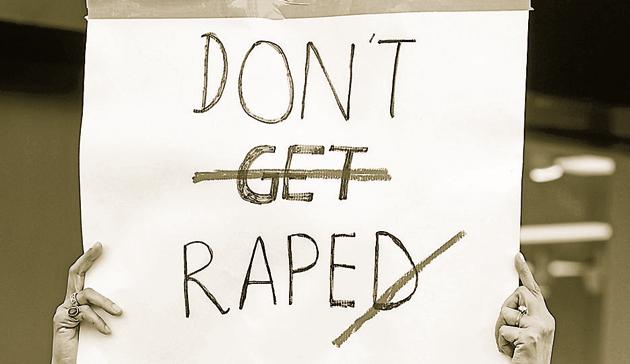 DON'T
GET
RAPED